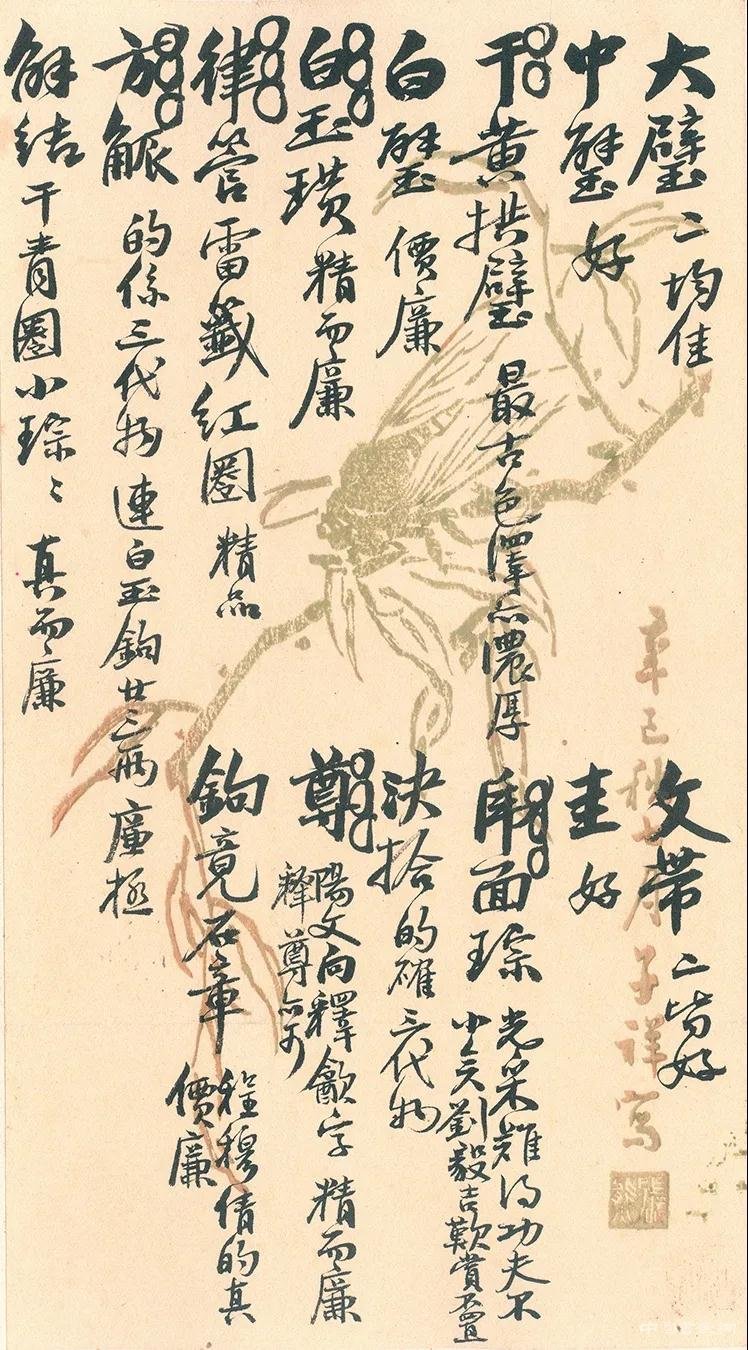 大璧 二均佳
中璧 好
干黄拱璧 最古色澤亦濃厚
白璧 價廉
白玉璜 精而廉
律管雷籤 紅圈 精品
方觚 的係三代物 連白玉鉤廿三兩 廉極
解結 干青圈小琮〻 真而廉
文帶 二皆好
圭 好
面琮 光采難得功夫不少矣劉毅吉歎賞不置
決拾 的確三代物
尊 陽文向釋歙字 精而廉
釋尊亦可
鉤竟石章 程穆倩的真
價廉
辛巳秋七月子祥寫